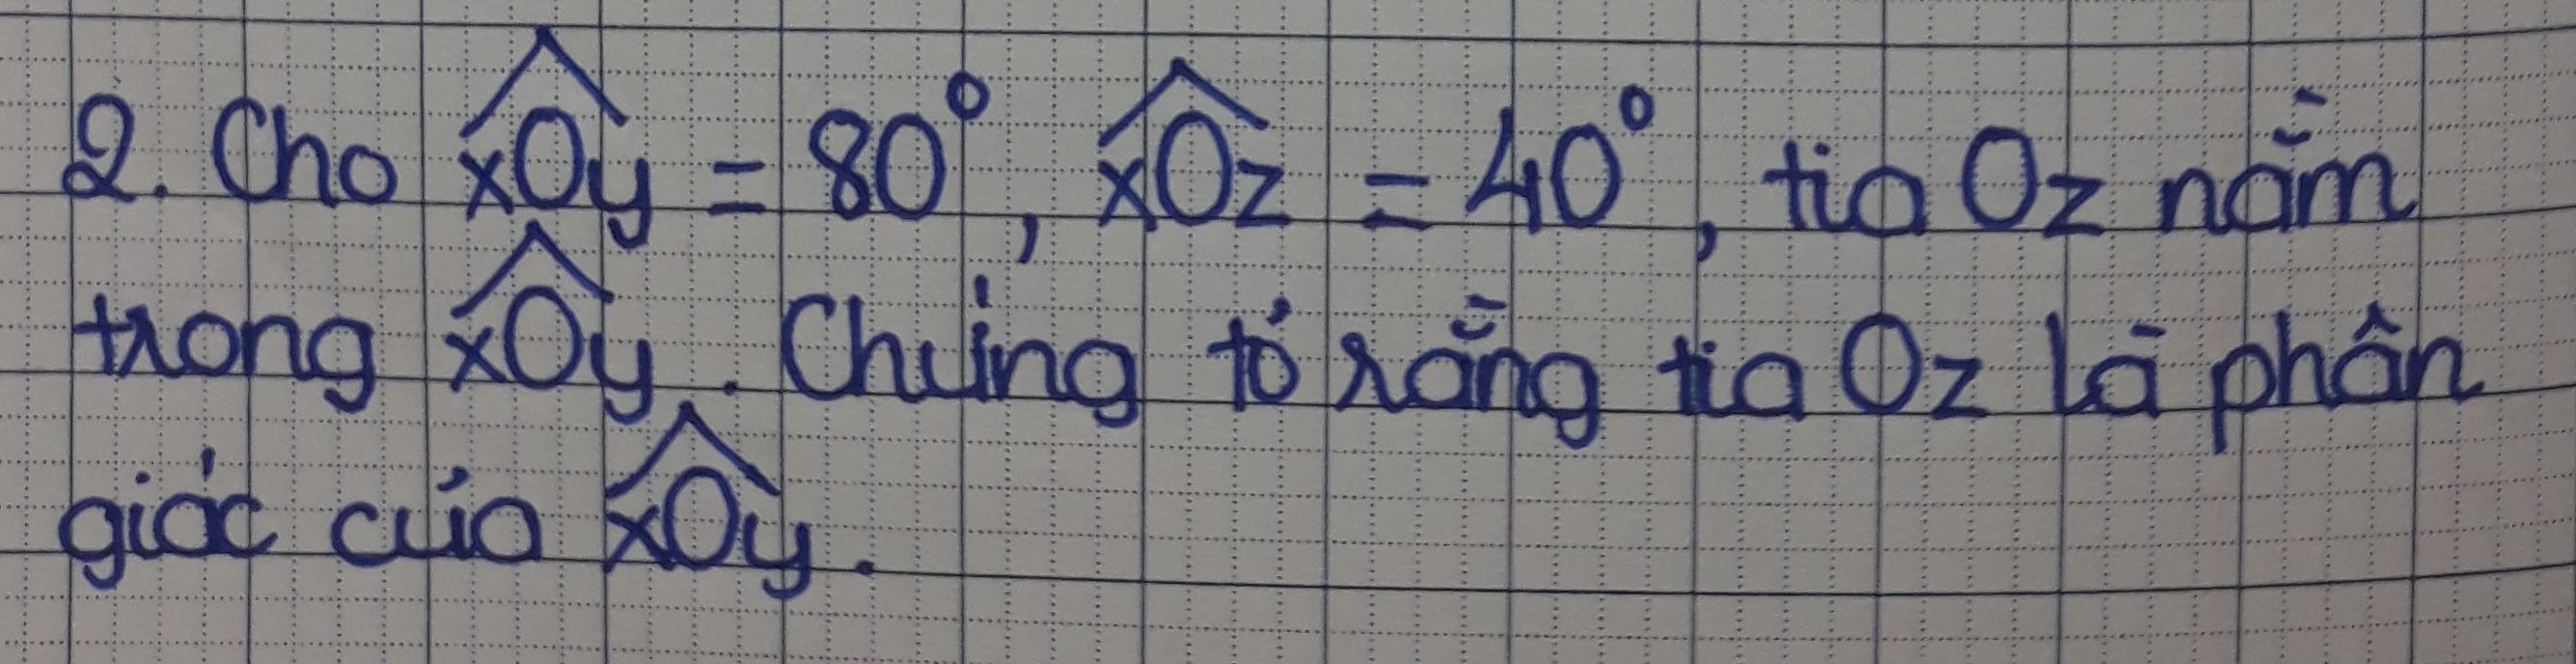 2. Cho $\widehat{xOy}$ = 80°, $\widehat{xOz}$ = 40°, tia Oz nằm
trong $\widehat{xOy}$. Chứng tỏ rằng tia Oz là phân
giác của $\widehat{xOy}$.